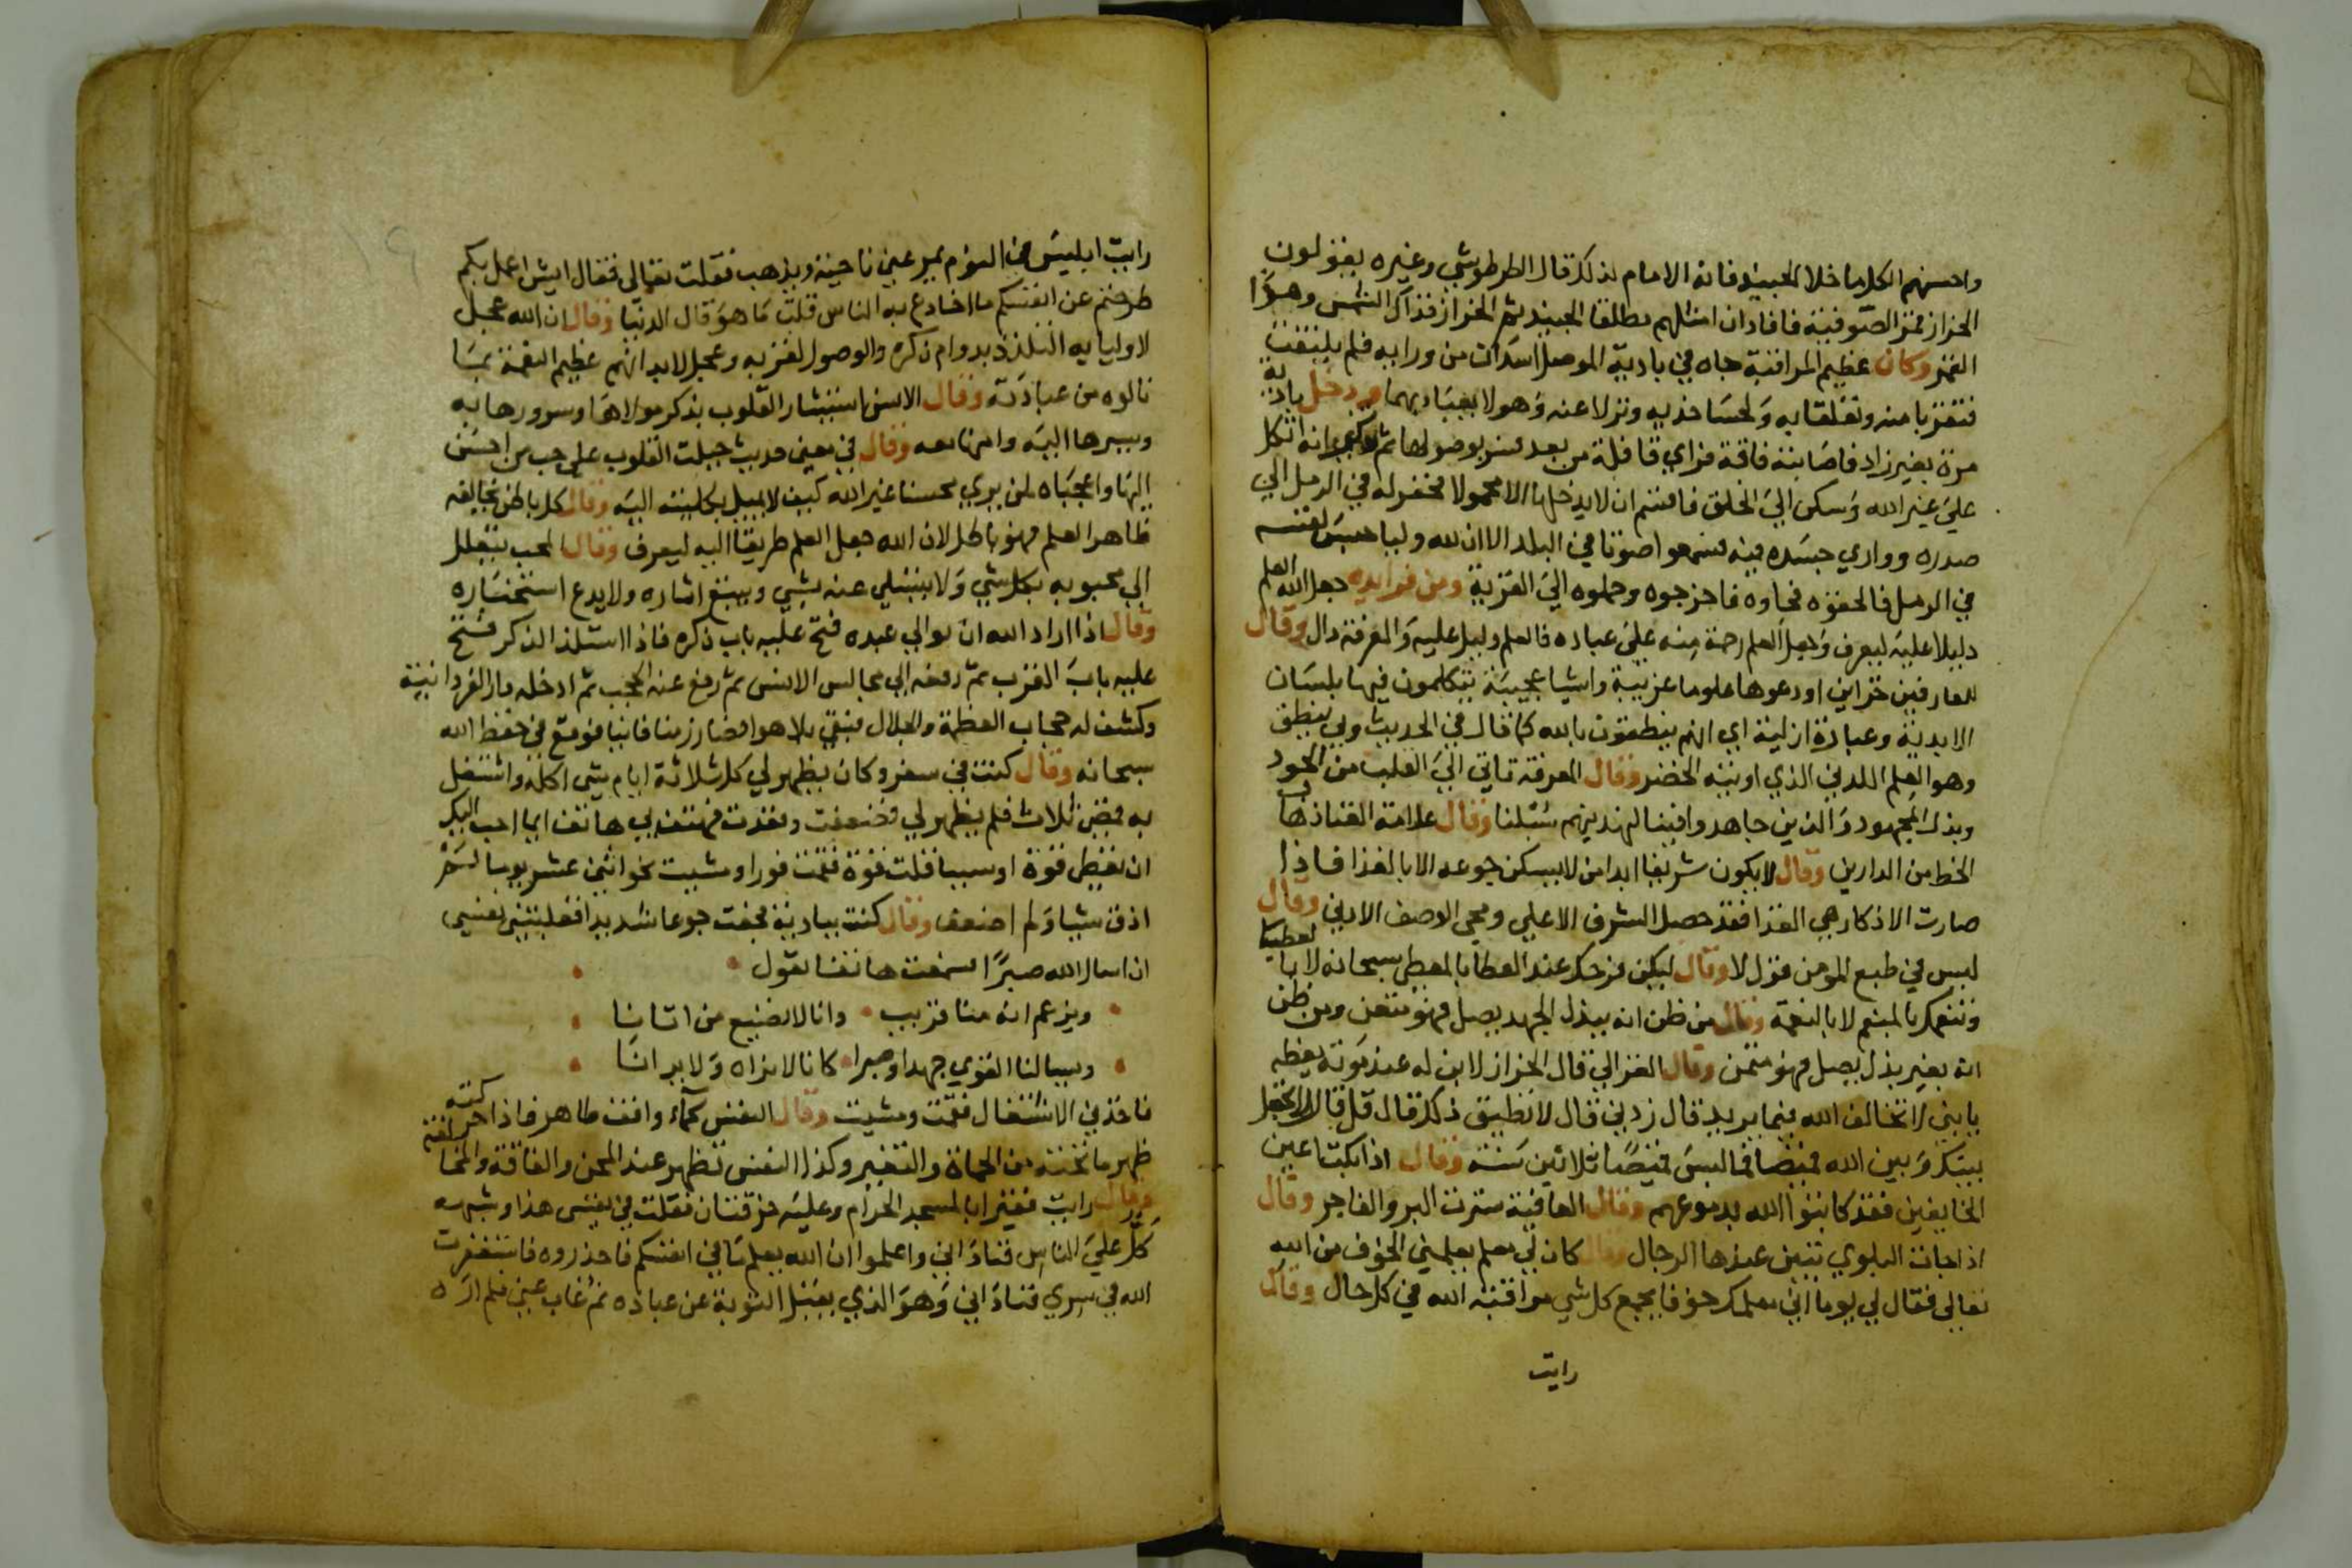 واحسنهم الكلاما خلا الجنيد فانه الامام لذلك قال الطرطوشي وغيره يقولون
الخراز قمر الصوفية فافاد ان امثلهم مطلقا الجنيد ثم الخراز فذاك الشمس وهذا
القمر وكان عظيم المراقبة جاه في بادية الموصل اسدان من ورايه فلم يلتفت
فتقربا منه وتعلقا به ولحسا خديه ونزلا عنه وهو لا يعبا بهما ودخل بادية
مرة بغير زاد فاصابته فاقة فراي قافلة من بعد فسر بوصولها ثم فكر انه اتكل
على غير الله وسكن الى الخلق فاقسم ان لا يدخلها الا محمولا فحفر له في الرمل الي
صدره وواري جسده فيه فسمعوا صوتا في البلد الا ان لله وليا حبس نفسه
في الرمل فالحقوه فجاوه فاخرجوه وحملوه الى القرية ومن فوايده جعل الله العلم
دليلا عليه ليعرف وجعل العلم رحمة منه على عباده فالعلم دليل عليه والمعرفة دال وقال
للعارفين خزاين اودعوها علوما غريبة واشيا عجيبة يتكلمون فيها بلسان
الابدية وعبارة ازلية اي انهم ينطقون بالله كما قال في الحديث وبي ينطق
وهو العلم اللدني الذي اوتيه الخضر وقال المعرفة تاتي الى القلب من الجود
وبذل المجهود والذين جاهدوا فينا لنهدينهم سبلنا وقال علامة الفنا ذهاب
الحظ من الدارين وقال لا يكون شريفا ابدا من لا يسكن جوعه الا بالغذا فاذا
صارت الاذكار هي الغذا فقد حصل الشرف الاعلي ومحي الوصف الادني وقال
ليس في طبع المومن قول لا وقال ليكن فرحك عند العطا بالمعطي سبحانه لا بالعطيا
وتنعمك بالمنعم لا بالنعمة وقال من ظن انه يبذل الجهد يصل فهو متعن ومن ظن
انه بغير بذل يصل فهو متمن وقال الغزالي قال الخراز لابن له عند موته يعظه
يا بني لا تخالف الله فيما يريد قال زدني قال لا تطيق ذلك قال قل قال لا تجعل
بينك وبين الله قميصا فما لبس قميصا ثلاثين سنة وقال اذا بكت اعين
الخايفين فقد كاتبوا الله بدموعهم وقال العافية سترت البر والفاجر وقال
اذا جات البلوي تتبين عندها الرجال وقال كان لي معلم يعلمني الخوف من الله
تعالى فقال لي يوما اني معلمك خوفا يجمع كل شي مراقبة الله في كل حال وقال
رايت
رايت ابليس في النوم يمر عني ناحية ويذهب فقلت تعالى فقال ايش اعمل بكم
طرحتم عن انفسكم ما اخادع به الناس قلت ما هو قال الدنيا وقال ان الله عجل
لاوليايه التلذذ بدوام ذكره والوصول لقربه وعجل لابدانهم عظيم النعمة بما
نالوه من عبادته وقال الانس استبشار القلوب بذكر مولاها وسرورها به
وسيرها اليه وامنها معه وقال في معنى حديث جبلت القلوب على حب من احسن
اليها واعجباه لمن يري محسنا غير الله كيف لا يميل بكليته اليه وقال كل باطن يخالفه
ظاهر العلم فهو باطل لان الله جعل العلم طريقا اليه ليعرف وقال المحب يتعلل
الي محبوبه بكل شي ولا يتسلي عنه بشي ويتبع اثاره ولا يدع استخباره
وقال اذا اراد الله ان يوالي عبده فتح عليه باب ذكره فاذا استلذ الذكر فتح
عليه باب القرب ثم رفعه الى مجالس الانس ثم رفع عنه الحجب ثم ادخله دار الفردانية
وكشف له حجاب العظمة والجلال فبقي بلا هو فصار زمنا فانيا فوقع في حفظ الله
سبحانه وقال كنت في سفر وكان يظهر لي كل ثلاثة ايام شي اكله واشتغل
به فمضى ثلاث فلم يظهر لي فضعفت وقعدت فهتف بي هاتف ايما احب اليك
ان نعطي قوة او سببا فقلت قوة فقمت فورا ومشيت نحو اثني عشر يوما لم
اذق شيا ولم اضعف وقال كنت ببادية فجعت جوعا شديدا فغلبتني نفسي
ان اسال الله صبرا فسمعت هاتفا يقول
ويزعم انه منا قريب وانا لا نضيع من اتانا
ويسالنا القوي جهدا وصبرا كانا لا نراه ولا يرانا
فاخذني الاشتغال فقمت ومشيت وقال النفس كماء واقف طاهر فاذا حركته
ظهر ما تحته من الحماة والتغير وكذا النفس تظهر عند المحن والفاقة والمخالفة
وقال رايت فقيرا بالمسجد الحرام وعليه خرقتان فقلت في نفسي هذا وشبهه
كل على الناس فناداني واعلموا ان الله يعلم ما في انفسكم فاحذروه فاستغفرت
الله في سري فناداني وهو الذي يقبل التوبة عن عباده ثم غاب عني فلم اره